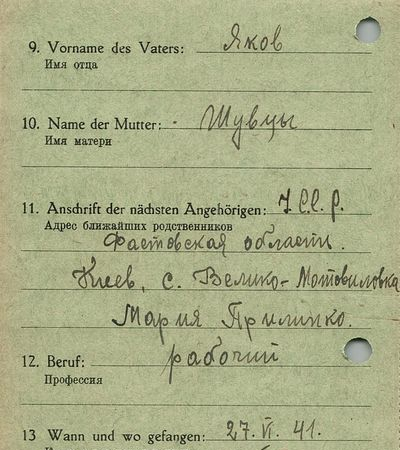 9. Vorname des Vaters: Яков
Имя отца
10. Name der Mutter: Шувцы
Имя матери
11. Anschrift der nächsten Angehörigen:
Адрес ближайших родственников
Фастовская области.
Киев, с. Велико-Мотовиловка
Мария Прилипко.
12. Beruf: рабочий
Профессия
13 Wann und wo gefangen: 27. VI. 41.